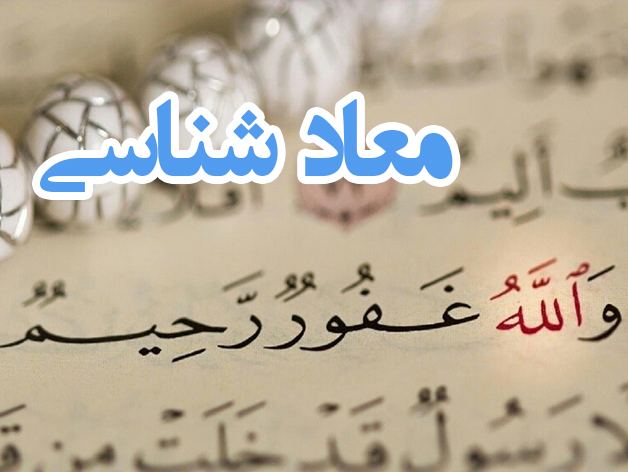 معاد شناسی
أَلِيمٌ
وَٱللَّهُ غَفُورٌ رَّحِيمٌ
رَسُولٌ قَدْ خَلَتْ مِن